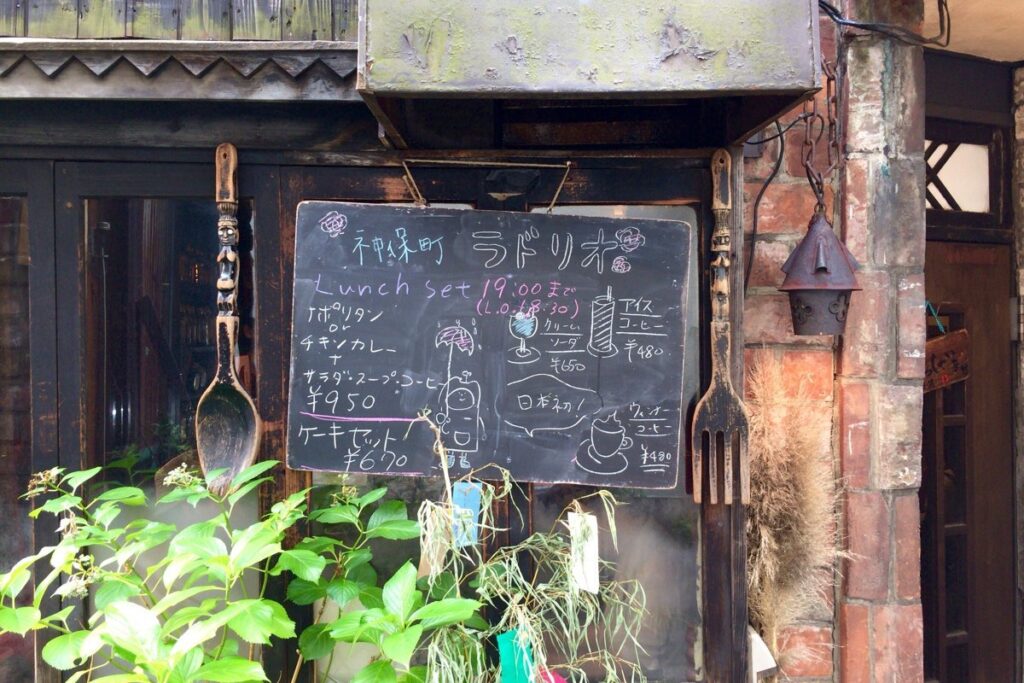 神保町 ラドリオ
Lunch set 19:00まで
(L.O.18:30)
ナポリタン
or
チキンカレー
+
サラダ・スープ・コーヒー
¥950
ケーキセット!
¥670
クリーム
ソーダ
¥650
アイス
コーヒー
¥480
日本初!
ウィンナー
コーヒー
¥480